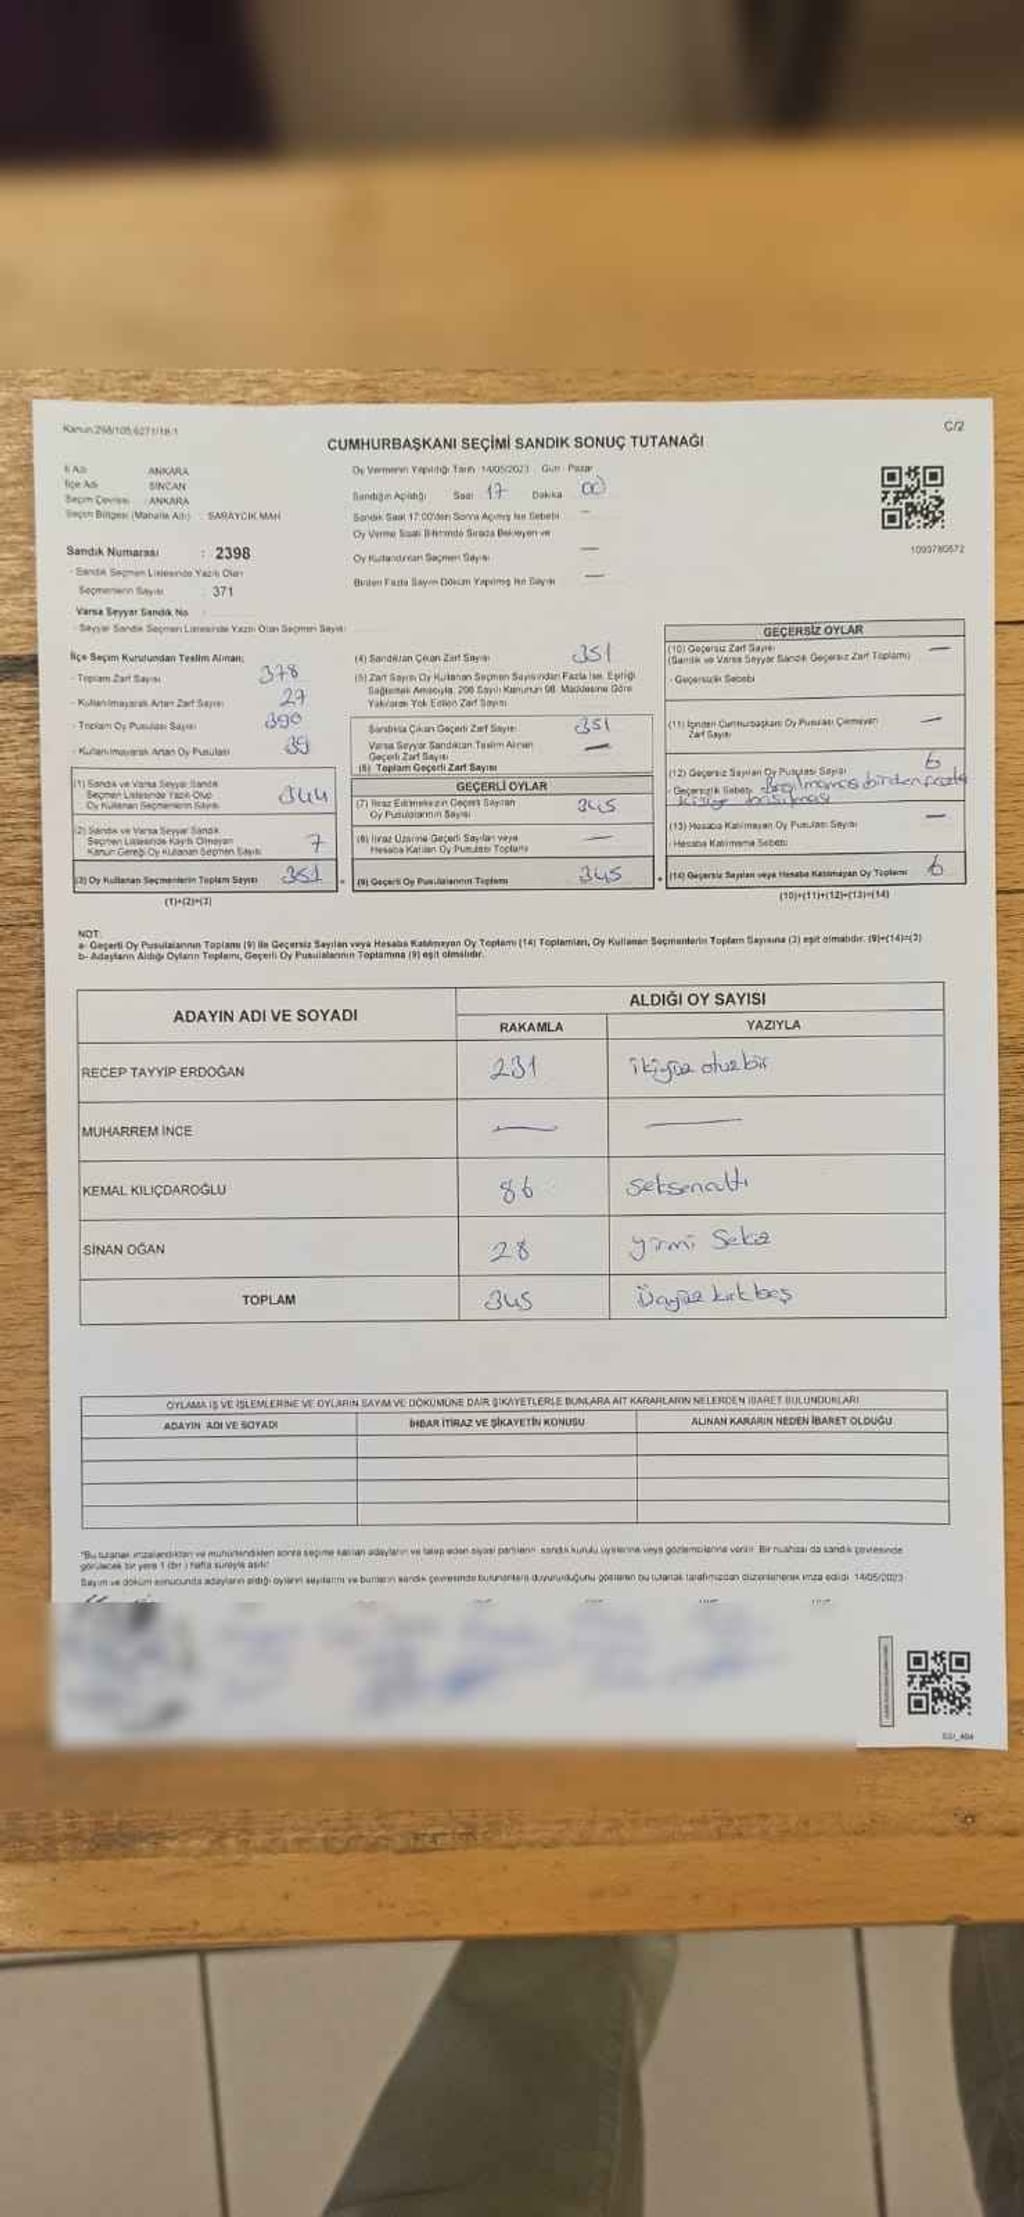 Kanun:298/105,6271/18-1
C/2
CUMHURBAŞKANI SEÇİMİ SANDIK SONUÇ TUTANAĞI
İl Adı ANKARA
İlçe Adı SİNCAN
Seçim Çevresi : ANKARA
Seçim Bölgesi (Mahalle Adı) : SARAYCIK MAH
Sandık Numarası : 2398
- Sandık Seçmen Listesinde Yazılı Olan
Seçmenlerin Sayısı : 371
Varsa Seyyar Sandık No
- Seyyar Sandık Seçmen Listesinde Yazılı Olan Seçmen Sayısı
Oy Vermenin Yapıldığı Tarih : 14/05/2023 Gün : Pazar
Sandığın Açıldığı Saat 17 Dakika 00
Sandık Saat 17:00'den Sonra Açılmış İse Sebebi —
Oy Verme Saati Bitiminde Sırada Bekleyen ve
Oy Kullandırılan Seçmen Sayısı —
Birden Fazla Sayım Döküm Yapılmış İse Sayısı —
1093780572
İlçe Seçim Kurulundan Teslim Alınan;
- Toplam Zarf Sayısı 378
- Kullanılmayarak Artan Zarf Sayısı 27
- Toplam Oy Pusulası Sayısı 390
- Kullanılmayarak Artan Oy Pusulası 39
(1) Sandık ve Varsa Seyyar Sandık
Seçmen Listesinde Yazılı Olup
Oy Kullanan Seçmenlerin Sayısı 344
(2) Sandık ve Varsa Seyyar Sandık
Seçmen Listesinde Kayıtlı Olmayan
Kanun Gereği Oy Kullanan Seçmen Sayısı 7
(3) Oy Kullanan Seçmenlerin Toplam Sayısı 351
(1)+(2)=(3)
(4) Sandıktan Çıkan Zarf Sayısı 351
(5) Zarf Sayısı Oy Kullanan Seçmen Sayısından Fazla İse, Eşitliği
Sağlamak Amacıyla, 298 Sayılı Kanunun 98. Maddesine Göre
Yakılarak Yok Edilen Zarf Sayısı
Sandıkta Çıkan Geçerli Zarf Sayısı 351
Varsa Seyyar Sandıktan Teslim Alınan
Geçerli Zarf Sayısı —
(6) Toplam Geçerli Zarf Sayısı
GEÇERLİ OYLAR
(7) İtiraz Edilmeksizin Geçerli Sayılan
Oy Pusulalarının Sayısı 345
(8) İtiraz Üzerine Geçerli Sayılan veya
Hesaba Katılan Oy Pusulası Toplamı —
(9) Geçerli Oy Pusulalarının Toplamı 345
GEÇERSİZ OYLAR
(10) Geçersiz Zarf Sayısı —
(Sandık ve Varsa Seyyar Sandık Geçersiz Zarf Toplamı)
- Geçersizlik Sebebi
(11) İçinden Cumhurbaşkanı Oy Pusulası Çıkmayan
Zarf Sayısı —
(12) Geçersiz Sayılan Oy Pusulası Sayısı 6
- Geçersizlik Sebebi Basılmaması birden fazla
kişiye basılması
(13) Hesaba Katılmayan Oy Pusulası Sayısı —
- Hesaba Katılmama Sebebi
(14) Geçersiz Sayılan veya Hesaba Katılmayan Oy Toplamı 6
(10)+(11)+(12)+(13)=(14)
NOT:
a- Geçerli Oy Pusulalarının Toplamı (9) ile Geçersiz Sayılan veya Hesaba Katılmayan Oy Toplamı (14) Toplamları, Oy Kullanan Seçmenlerin Toplam Sayısına (3) eşit olmalıdır. (9)+(14)=(3)
b- Adayların Aldığı Oyların Toplamı, Geçerli Oy Pusulalarının Toplamına (9) eşit olmalıdır.
ADAYIN ADI VE SOYADI
ALDIĞI OY SAYISI
RAKAMLA YAZIYLA
RECEP TAYYİP ERDOĞAN 231 ikiyüz otuzbir
MUHARREM İNCE — —
KEMAL KILIÇDAROĞLU 86 seksenaltı
SİNAN OĞAN 28 yirmi Sekiz
TOPLAM 345 Üçyüz kırkbeş
OYLAMA İŞ VE İŞLEMLERİNE VE OYLARIN SAYIM VE DÖKÜMÜNE DAİR ŞİKAYETLERLE BUNLARA AİT KARARLARIN NELERDEN İBARET BULUNDUKLARI
ADAYIN ADI VE SOYADI İHBAR İTİRAZ VE ŞİKAYETİN KONUSU ALINAN KARARIN NEDEN İBARET OLDUĞU
"Bu tutanak imzalandıktan ve mühürlendikten sonra seçime katılan adayların ve talep eden siyasi partilerin sandık kurulu üyelerine veya gözlemcilerine verilir. Bir nüshası da sandık çevresinde
görülecek bir yere 1 (bir) hafta süreyle asılır"
Sayım ve döküm sonucunda adayların aldığı oyların sayılarını ve bunların sandık çevresinde bulunanlara duyurulduğunu gösteren bu tutanak tarafımızdan düzenlenerek imza edildi. 14/05/2023